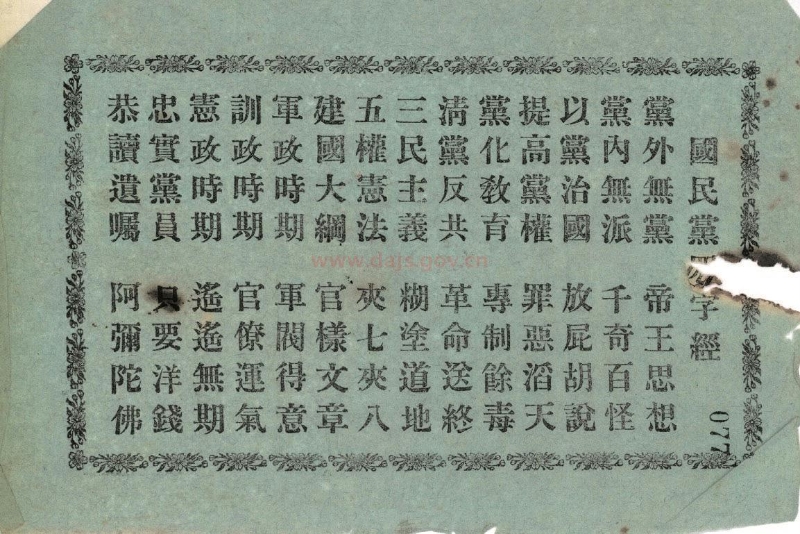 國民黨四字經
黨外無黨 帝王思想
黨內無派 千奇百怪
以黨治國 放屁胡說
提高黨權 罪惡滔天
黨化教育 專制餘毒
清黨反共 革命送終
三民主義 糊塗道地
五權憲法 夾七夾八
建國大綱 官樣文章
軍政時期 軍閥得意
訓政時期 官僚運氣
憲政時期 遙遙無期
忠實黨員 只要洋錢
恭讀遺囑 阿彌陀佛
077
www.dajs.gov.cn